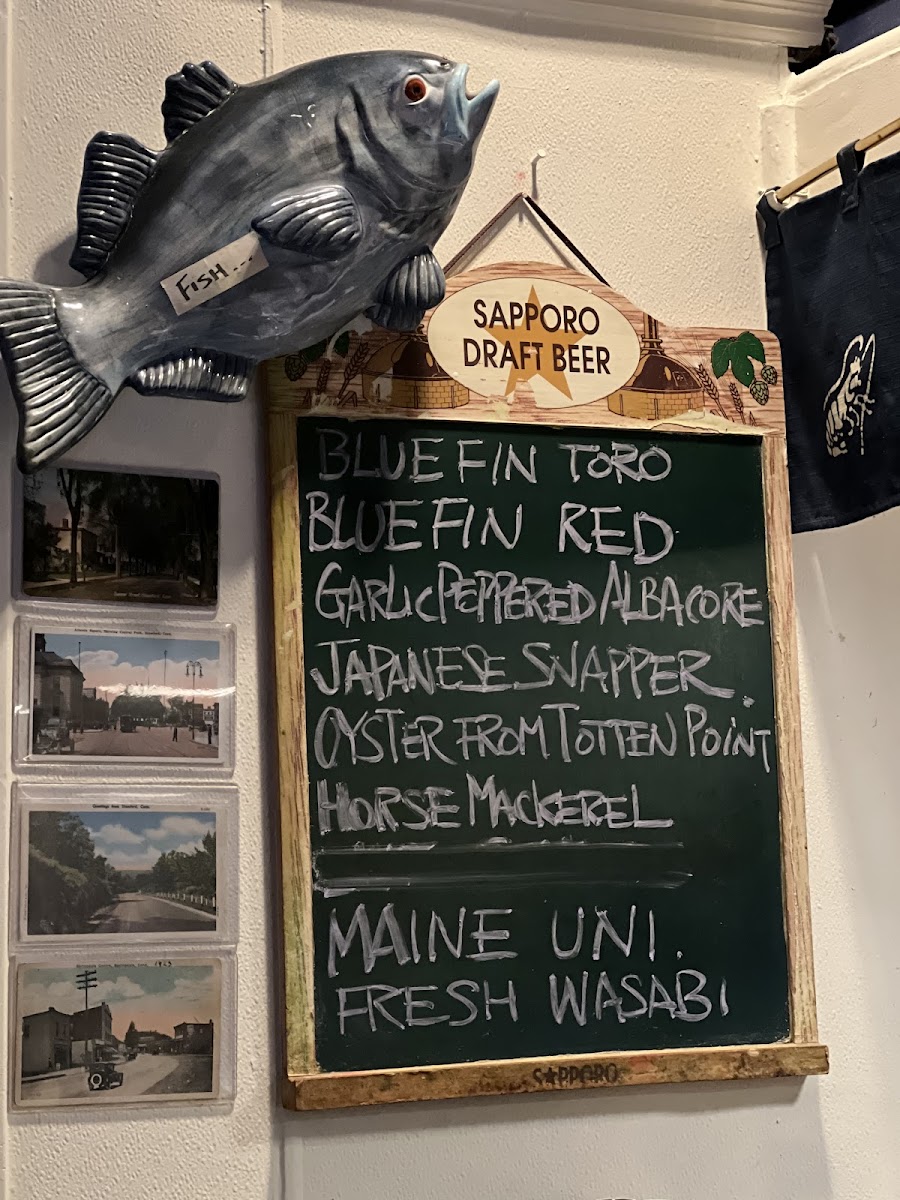 FISH...
SAPPORO
DRAFT BEER
BLUEFIN TORO
BLUEFIN RED
GARLIC PEPPERED ALBACORE
JAPANESE SNAPPER
OYSTER FROM TOTTEN POINT
HORSE MACKEREL
MAINE UNI.
FRESH WASABI
SAPPORO